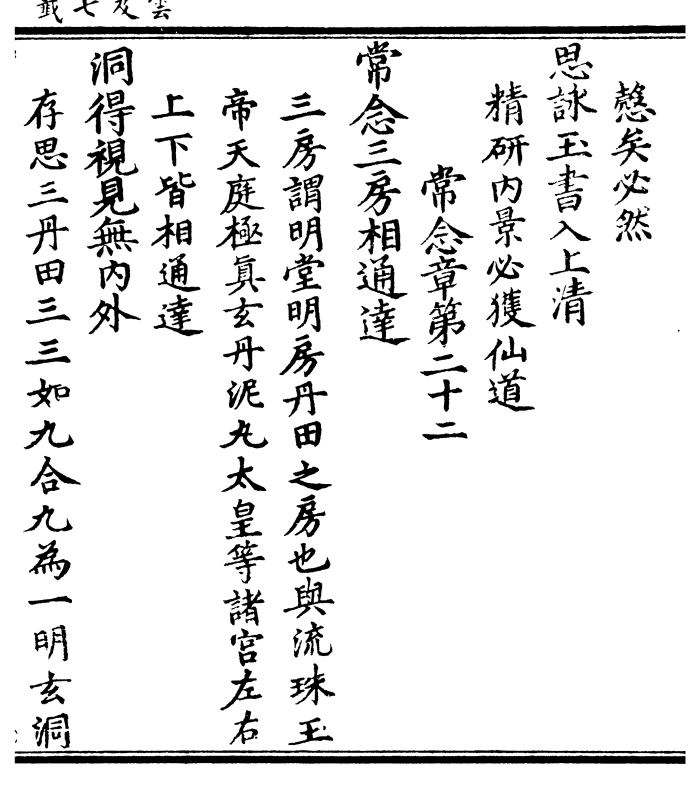 雲笈七籤
愨矣必然
思詠玉書入上清
精研內景必獲仙道
常念章第二十二
常念三房相通達
三房謂明堂明房丹田之房也與流珠玉
帝天庭極真玄丹泥丸太皇等諸宮左右
上下皆相通達
洞得視見無內外
存思三丹田三三如九合九為一明玄洞